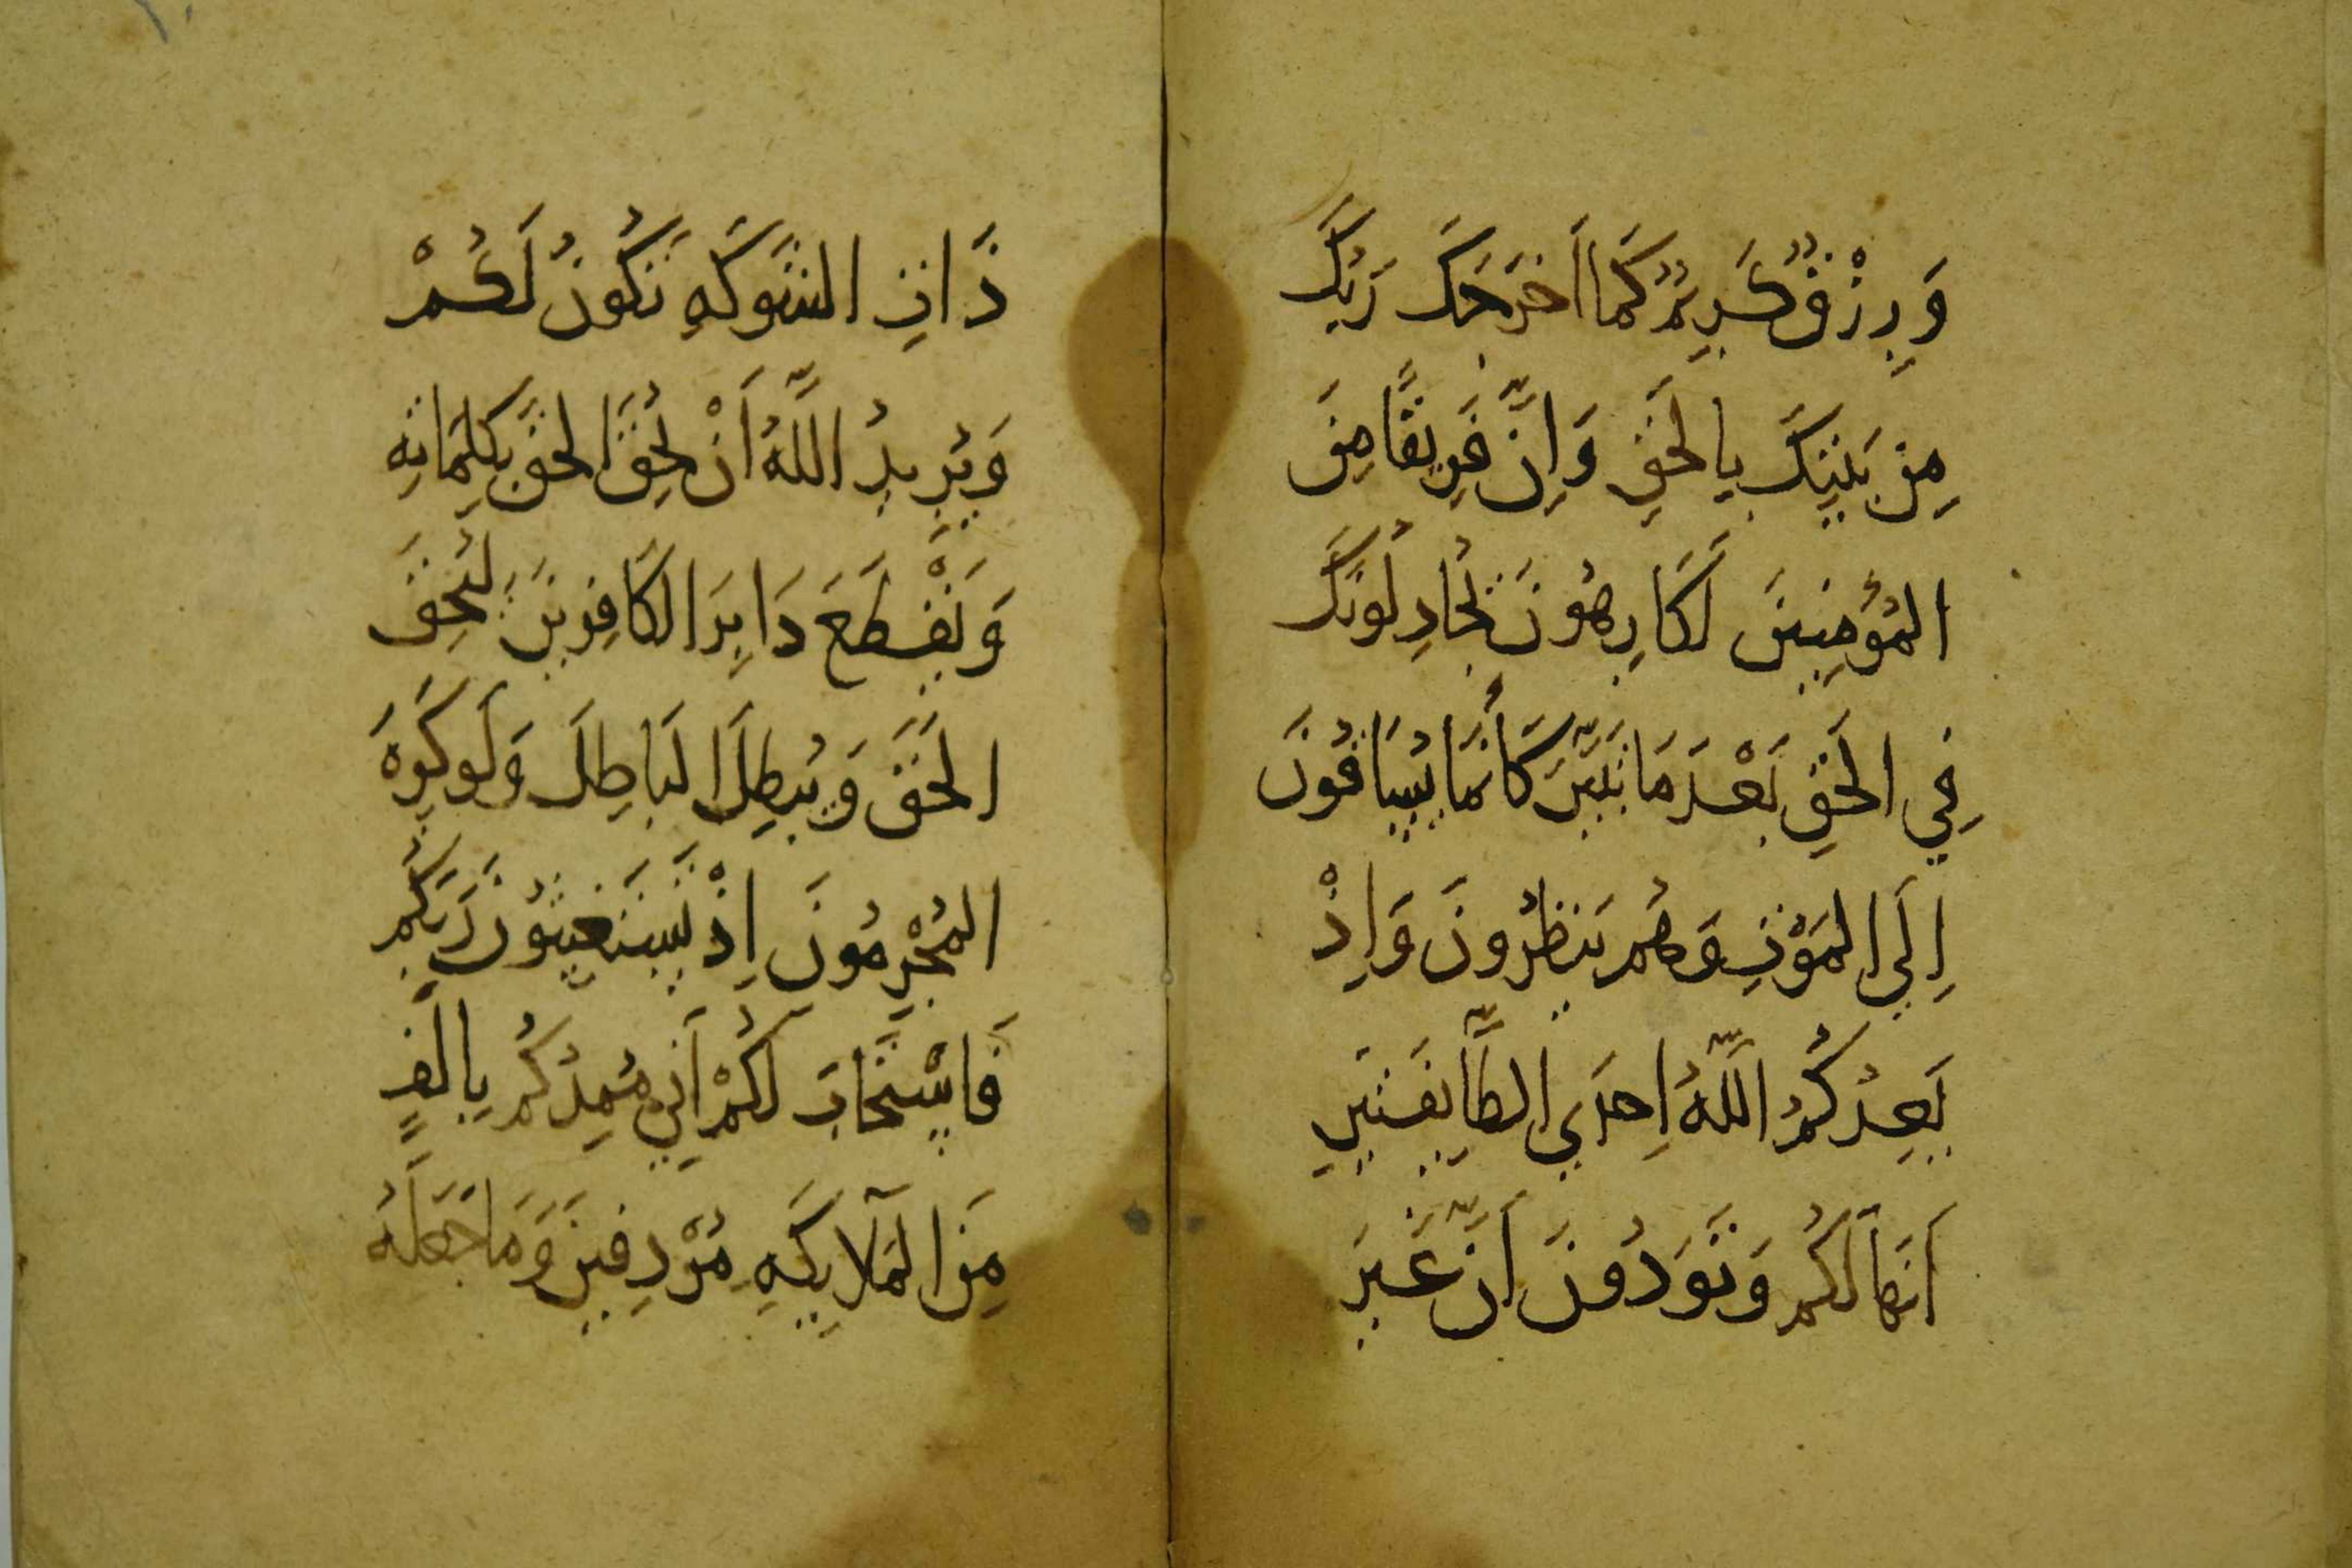 وَرِزْقٌ كَرِيمٌ كَمَا اَخرَجَكَ رَبُّكَ
مِن بَيتِكَ بِالحَقِّ وَاِنَّ فَرِيقًا مِنَ
المُؤمِنِينَ لَكَارِهُونَ يُجَادِلُونَكَ
فِي الحَقِّ بَعْدَ مَا تَبَيَّنَ كَأَنَّمَا يُسَاقُونَ
اِلَي المَوْتِ وَهُم يَنظُرُونَ وَاِذْ
يَعِدُكُمُ اللَّهُ اِحدَي الطَّايِفَتَينِ
اَنَّهَا لَكُم وَتَوَدُّونَ اَنَّ غَيرَ
ذَاتِ الشَّوكَهِ تَكُونُ لَكُمْ
وَيُرِيدُ اللَّهُ اَنْ يُحِقَّ الحَقَّ بِكَلِمَاتِهِ
وَيَقْطَعَ دَابِرَ الكَافِرِينَ لِيُحِقَّ
الحَقَّ وَيُبطِلَ البَاطِلَ وَلَو كَرِهَ
المُجْرِمُونَ اِذْ تَستَغِيثُونَ رَبَّكُم
فَاسْتَجَابَ لَكُمْ اَنِّي مُمِدُّكُم بِاَلفٍ
مِنَ المَلَايِكَهِ مُرْدِفِينَ وَمَا جَعَلَهُ